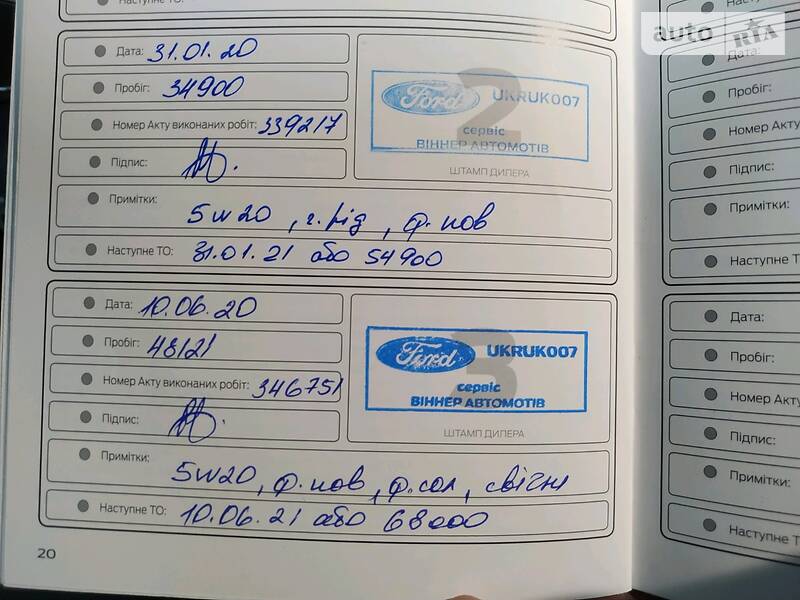 Наступне ТО:
auto RIA
Дата: 31.01.20
Пробіг: 34900
Номер Акту виконаних робіт: 339217
Підпис:
2
Ford UKRUK007
сервіс
ВІННЕР АВТОМОТІВ
ШТАМП ДИЛЕРА
Примітки:
5w20, г.рід, ф.пов
Наступне ТО: 31.01.21 або 54900
Дата: 10.06.20
Пробіг: 48121
Номер Акту виконаних робіт: 346751
Підпис:
3
Ford UKRUK007
сервіс
ВІННЕР АВТОМОТІВ
ШТАМП ДИЛЕРА
Примітки:
5w20, ф.пов, ф.сал, свічки
Наступне ТО: 10.06.21 або 68000
20
Дата:
Пробіг:
Номер Акту
Підпис:
Примітки:
Наступне ТО
Дата:
Пробіг:
Номер Акту
Підпис:
Примітки:
Наступне